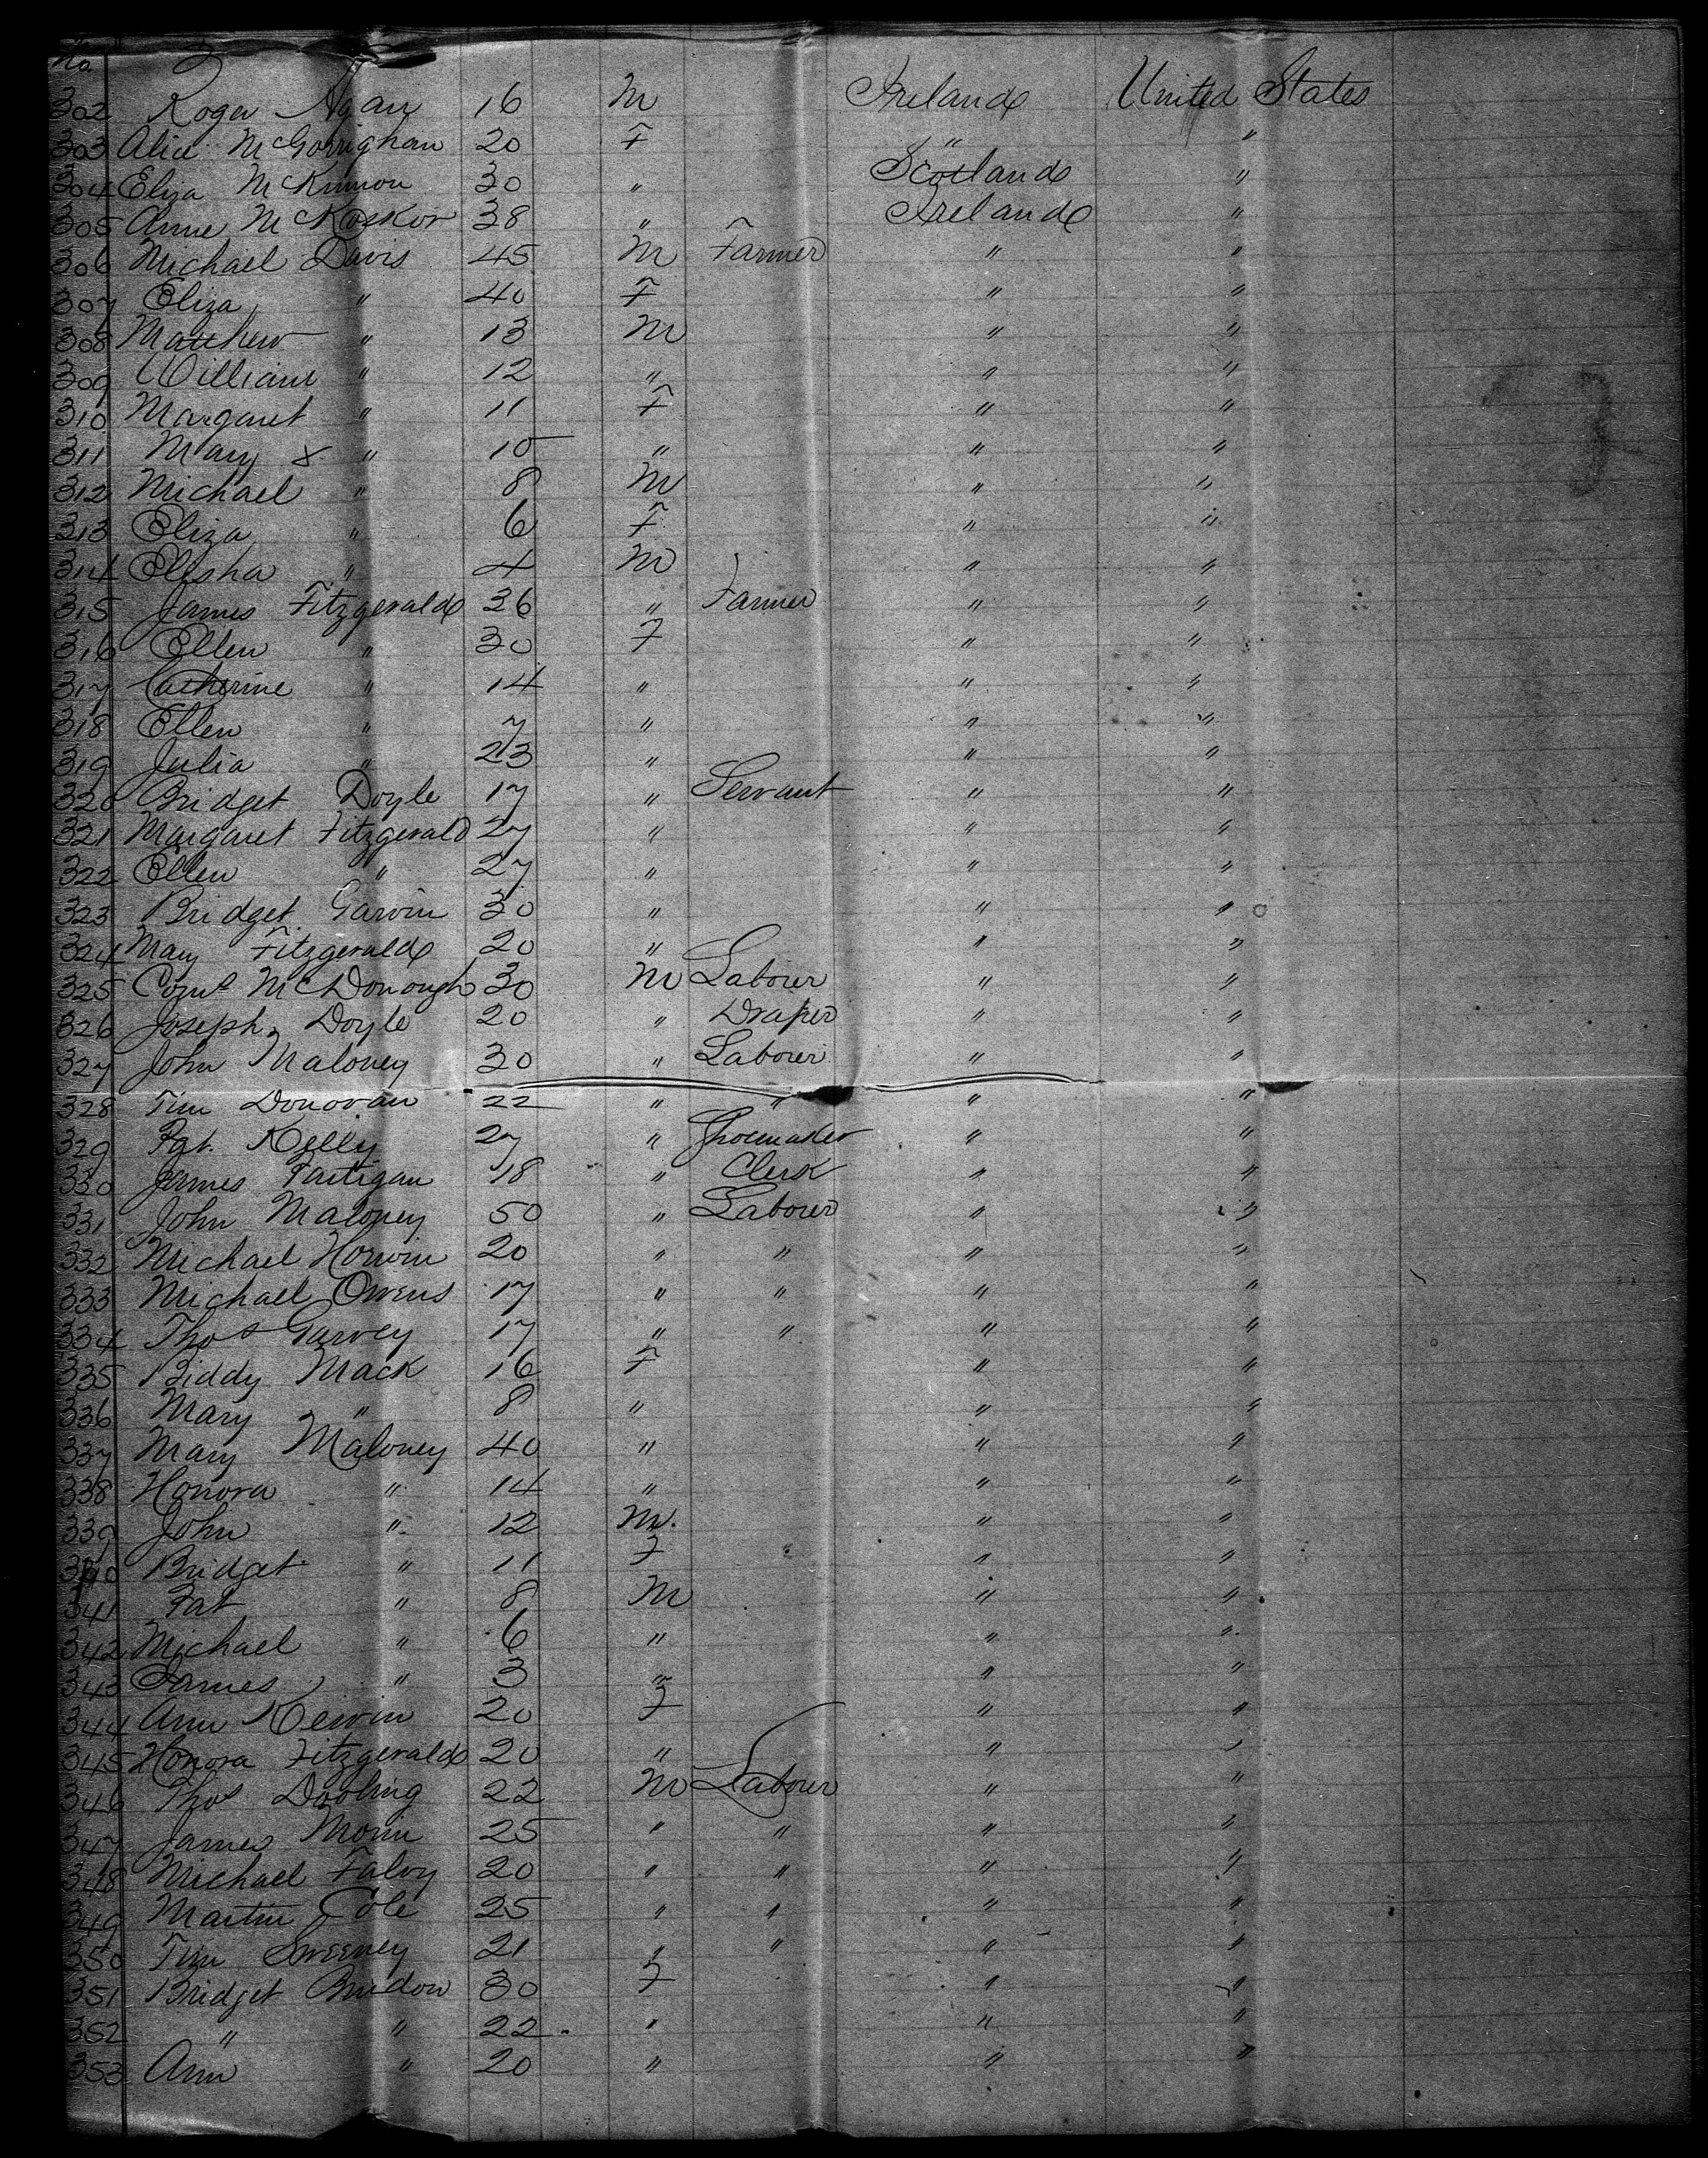 No. 3
302 Roger Agan 16 M Ireland United States
303 Alice McGorrighan 20 F " "
304 Eliza McKinnon 30 " Scotland "
305 Anne McKosker 38 " Ireland "
306 Michael Davis 45 M Farmer " "
307 Eliza " 40 F " "
308 Matthew " 13 M " "
309 William " 12 " " "
310 Margaret " 11 F " "
311 Mary & " 10 " " "
312 Michael " 8 M " "
313 Eliza " 6 F " "
314 Elisha " 4 M " "
315 James Fitzgerald 36 " Farmer " "
316 Ellen " 30 F " "
317 Catherine " 14 " " "
318 Ellen " 7 " " "
319 Julia " 23 " " "
320 Bridget Doyle 17 " Servant " "
321 Margaret Fitzgerald 27 " " "
322 Ellen " 27 " " "
323 Bridget Garvin 30 " " "
324 Mary Fitzgerald 20 " " "
325 McDonough 30 M Labourer " "
326 Joseph Doyle 20 " Draper " "
327 John Maloney 30 " Labourer " "
328 Tim Donovan 22 " " " "
329 Pat. Kelly 27 " Shoemaker " "
330 James Partigan 18 " Clerk " "
331 John Maloney 50 " Labourer " "
332 Michael Horwin 20 " " " "
333 Michael Owens 17 " " " "
334 Thos Garvey 17 " " " "
335 Biddy Mack 16 F " "
336 Mary " 8 " " "
337 Mary Maloney 40 " " "
338 Honora " 14 " " "
339 John " 12 M. " "
340 Bridget " 11 F " "
341 Pat " 8 M " "
342 Michael " 6 " " "
343 James " 3 " " "
344 Ann Kerwin 20 F " "
345 Honora Fitzgerald 20 " " "
346 Thos Dooling 22 M Labourer " "
347 James Morin 25 " " " "
348 Michael Falvy 20 " " " "
349 Martin Cole 25 " " " "
350 Tim Sweeney 21 " " " "
351 Bridget 30 F " "
352 " " 22 " " "
353 Ann " 20 " " "